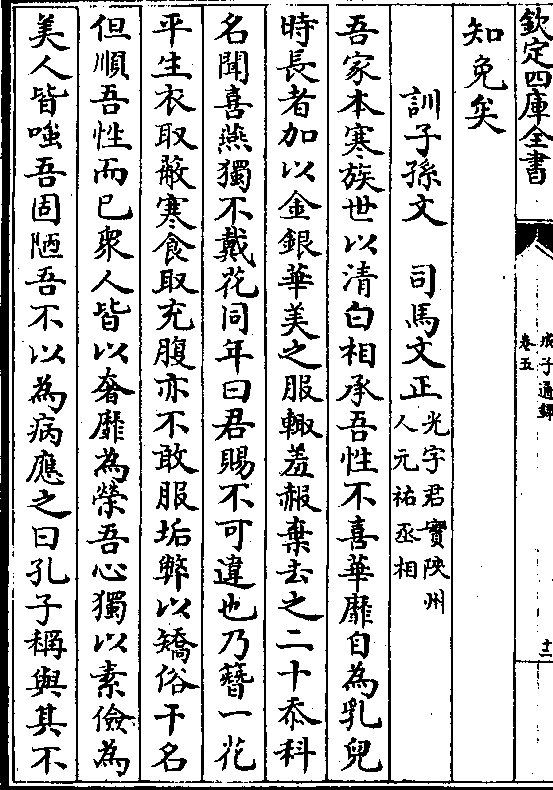 欽定四庫全書
戒子通録
卷五
十二
知免矣
訓子孫文　司馬文正
光字君實陜州
人元祐丞相
吾家本寒族世以清白相承吾性不喜華靡自為乳兒
時長者加以金銀華美之服輙羞赧棄去之二十忝科
名聞喜燕獨不戴花同年曰君賜不可違也乃簪一花
平生衣取蔽寒食取充腹亦不敢服垢弊以矯俗干名
但順吾性而已衆人皆以奢靡為榮吾心獨以素儉為
美人皆嗤吾固陋吾不以為病應之曰孔子稱與其不